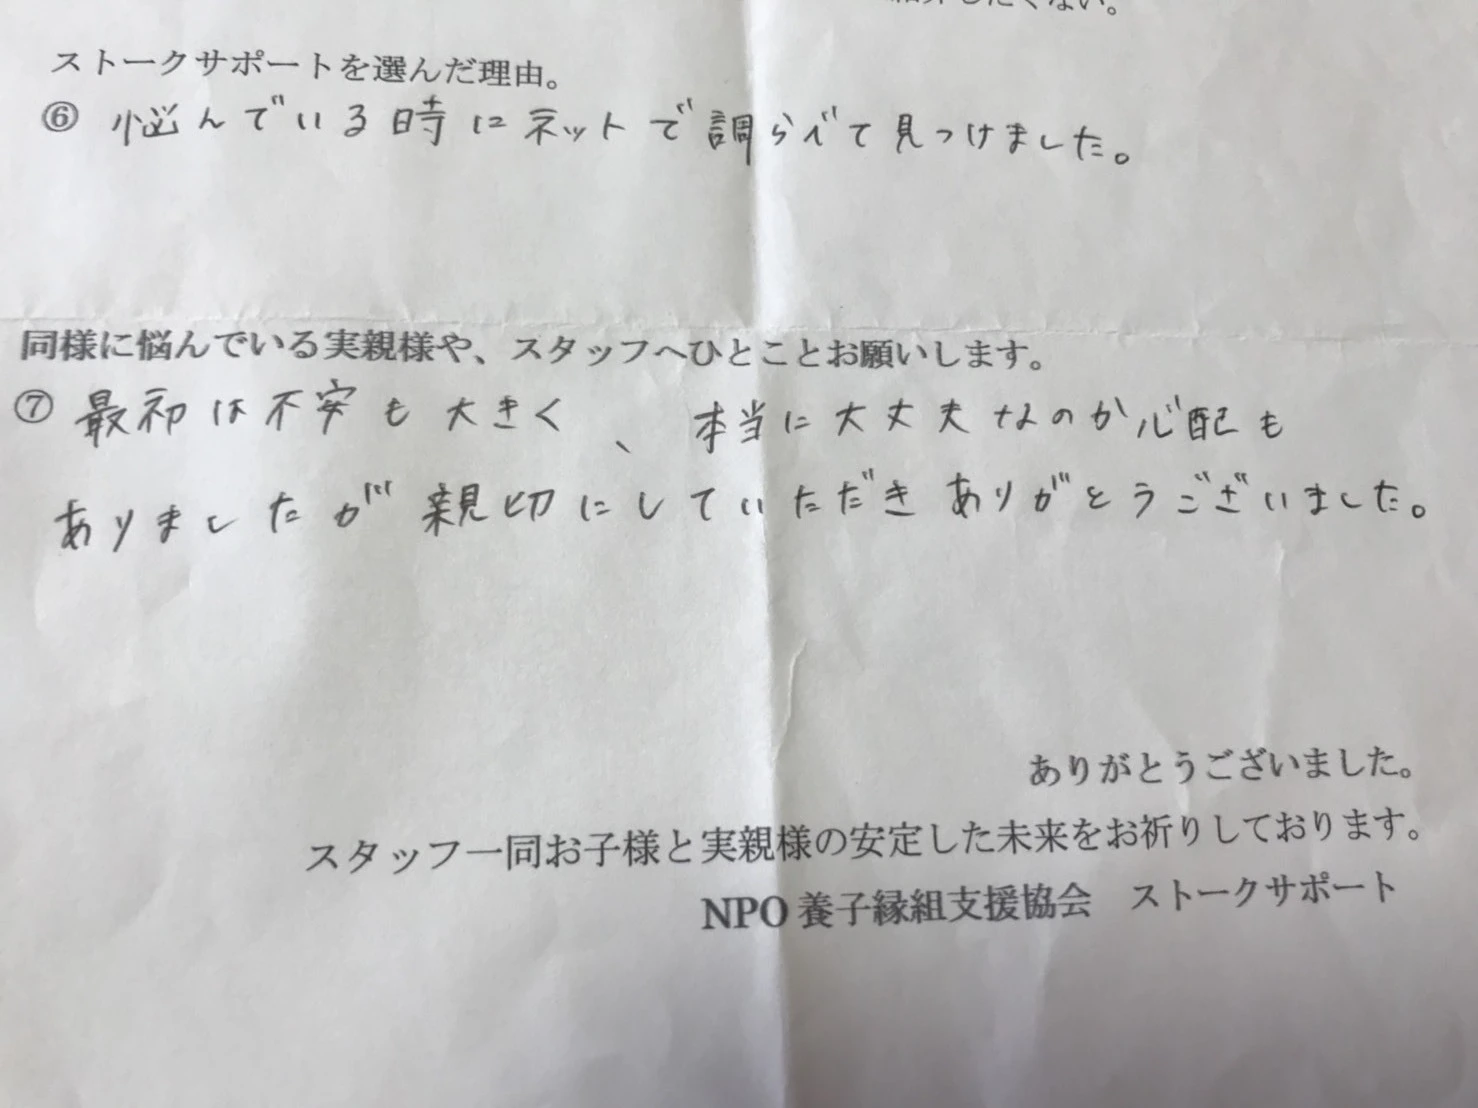 したくない。
ストークサポートを選んだ理由。
⑥ 悩んでいる時にネットで調らべて見つけました。
同様に悩んでいる実親様や、スタッフへひとことお願いします。
⑦ 最初は不安も大きく、本当に大丈夫なのか心配も
ありましたが親切にしていただきありがとうございました。
ありがとうございました。
スタッフ一同お子様と実親様の安定した未来をお祈りしております。
NPO 養子縁組支援協会 ストークサポート